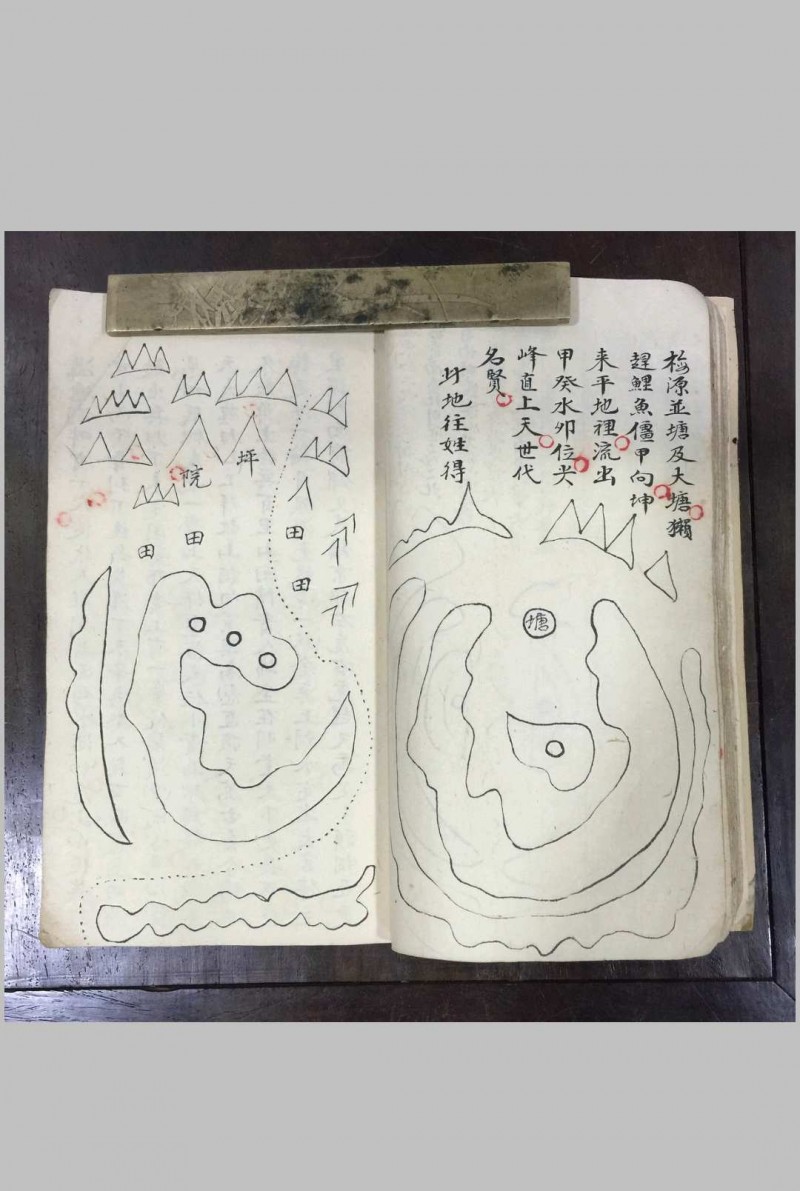 梅源並塘及大塘獺
趕鯉魚僵甲向坤
来平地裡流出
甲癸水卯位尖
峰直上天世代
名賢
此地往姓得
塘
坪
院
田
田
田
田